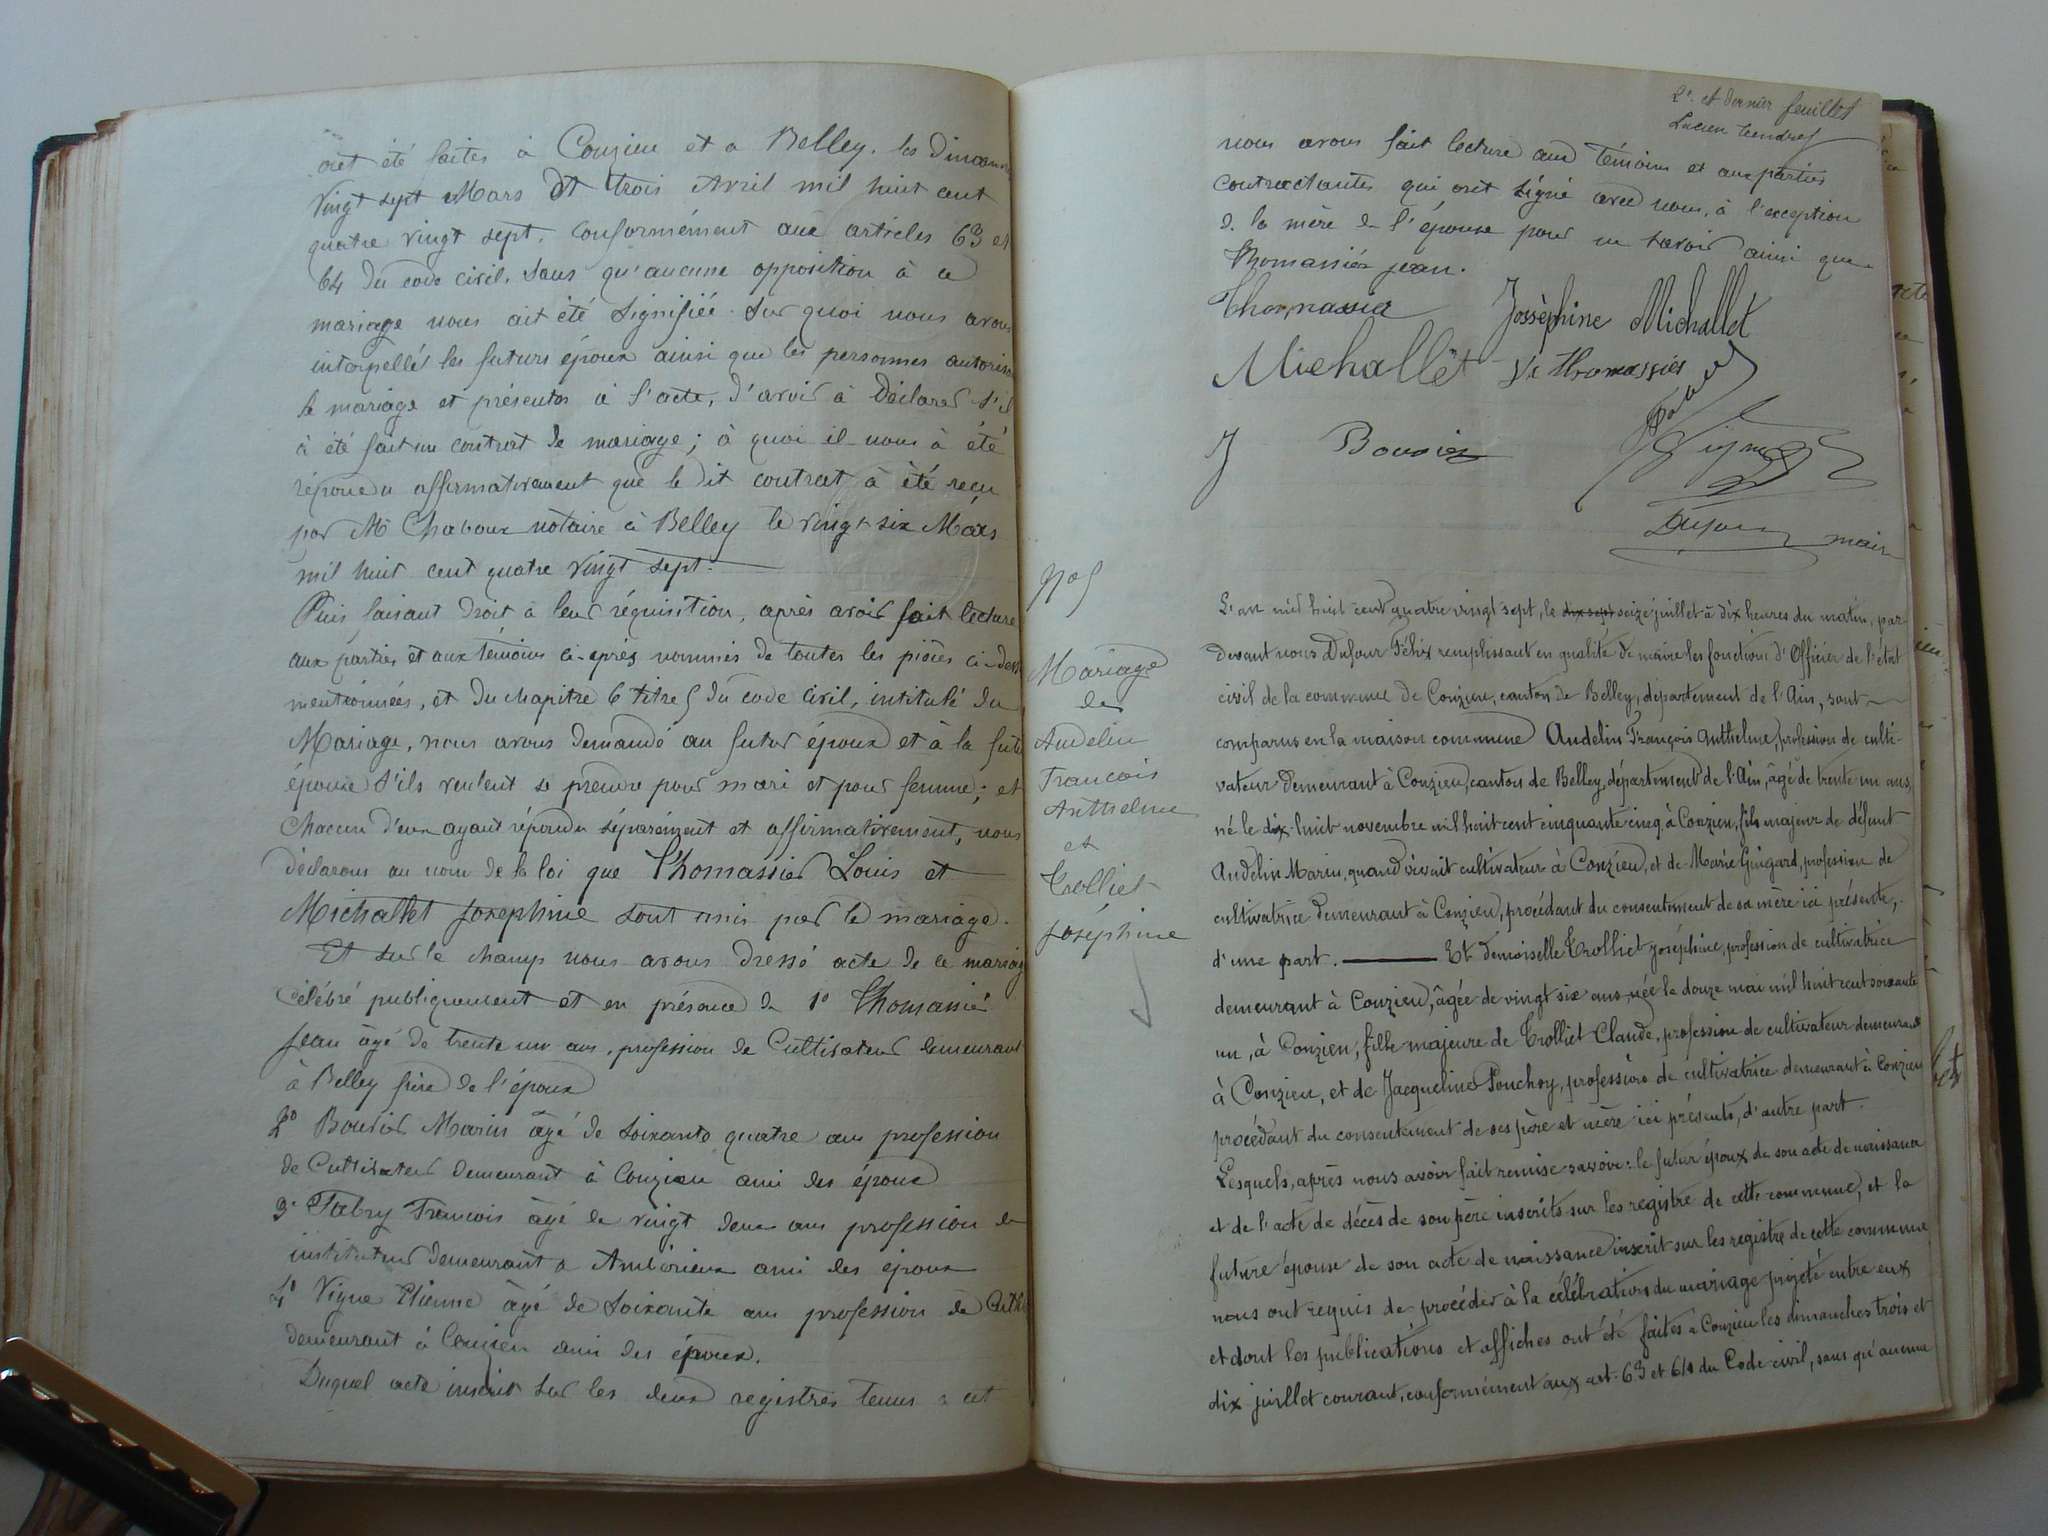 ont été faites à Conzieu et a Belley. les Dimanches
Vingt sept Mars et trois Avril mil huit cent
quatre vingt sept. Conformément aux articles 63 et
64 du code civil. sans qu'aucune opposition à ce
mariage nous ait été signifiée. Sur quoi nous avons
interpellé les futurs époux ainsi que les personnes autorisant
le mariage et présentes à l'acte, d'avoir à Déclarer s'il
à été fait un contrat de mariage; à quoi il nous à été
répondu affirmativement que le dit contrat à été reçu
par Me Chaboux notaire à Belley le vingt six Mars
mil huit cent quatre vingt sept.
Puis faisant droit à leur réquisition, après avoir fait lecture
aux parties et aux témoins ci-après nommés de toutes les pièces ci-dessus
mentionnées, et du chapitre 6 titre 5 du code civil, intitulé du
Mariage, nous avons demandé au futur époux et à la future
épouse s'ils veulent se prendre pour mari et pour femme; et
chacun d'eux ayant répondu séparément et affirmativement, nous
déclarons au nom de la loi que Thomassier Louis et
Michallet Josephine sont unis par le mariage.
Et sur le champ nous avons dressé acte de ce mariage
célébré publiquement et en présence de 1° Thomassié
Jean âgé de trente un ans, profession de Cultivateur demeurant
à Belley frère de l'époux
2° Bouvier Marin âgé de soixante quatre ans profession
de Cultivateur demeurant à Conzieu ami des époux
3° Fabry François âgé de vingt deux ans profession de
instituteur demeurant a Ambérieux ami des époux
4° Vigne Etienne âgé de soixante ans profession de Cult
demeurant à Conzieu ami des époux.
Duquel acte inscrit sur les deux registres tenus à cet
2e. et dernier feuillet
Lucien Tendret
nous avons fait lecture aux témoins et aux parties
contractantes qui ont signé avec nous, à l'exception
de la mère de l'épouse pour ne savoir ainsi que
Thomassier jean.
Thormassier Josséphine Michallet
Michallet Ve Thomassier
J Bouvier
Dufour maire
No 5
Mariage
de
Audelin
François
Anthelme
et
Trolliet
Joséphine
L'an mil huit cent quatre vingt sept, le dix sept seize juillet à dix heures du matin, par-
devant nous Dufour Félix remplissant en qualité de maire les fonctions d'Officier de l'état
civil de la commune de Conzieu, canton de Belley, département de l'Ain, sont
comparus en la maison commune Audelin François Anthelme, profession de culti-
vateur demeurant à Conzieu, canton de Belley, département de l'Ain, âgé de trente un ans,
né le dix-huit novembre mil huit cent cinquante cinq à Conzieu, fils majeur de défunt
Audelin Marin, quand vivait cultivateur à Conzieu, et de Marie Guigard, profession de
cultivatrice demeurant à Conzieu, procédant du consentement de sa mère ici présente,
d'une part. Et demoiselle Trolliet Joséphine, profession de cultivatrice
demeurant à Conzieu, âgée de vingt six ans née le douze mai mil huit cent soixante
un, à Conzieu, fille majeure de Trolliet Claude, profession de cultivateur demeurant
à Conzieu, et de Jacqueline Ponchoy, profession de cultivatrice demeurant à Conzieu
procédant du consentement de ses père et mère ici présents, d'autre part.
Lesquels, après nous avoir fait remise savoir: le futur époux de son acte de naissance
et de l'acte de décès de son père inscrits sur les registre de cette commune, et la
future épouse de son acte de naissance inscrit sur les registre de cette commune
nous ont requis de procéder à la célébration du mariage projeté entre eux
et dont les publications et affiches ont été faites à Conzieu les dimanches trois et
dix juillet courant, conformément aux art. 63 et 64 du Code civil, sans qu'aucune